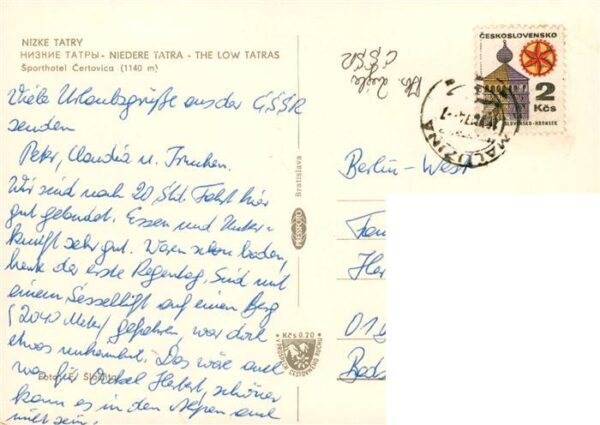 NIZKE TATRY
НИЗКИЕ ТАТРЫ - NIEDERE TATRA - THE LOW TATRAS
Športhotel Čertovica (1140 m)
Viele Urlaubsgrüße aus der ČSSR
senden
Peter, Claudia u.
Wir sind nach 20 Std. Fahrt hier
gut gelandet. Essen und Unter-
kunft sehr gut. Waren schon baden,
heute der erste Regentag. Sind mit
einem Sessellift auf einen Berg
(2040 Meter) gefahren war doch
etwas Das wäre auch
was für Onkel Herbert, schöner
kann es in den Alpen auch
nicht sein.
Foto: E.
Bratislava
PRESSFOTO
Kčs 0,20
ČSSR
ČESKOSLOVENSKO
2
Kčs
SLOVENSKO-HRONSEK
MALUŽINÁ
Berlin-West